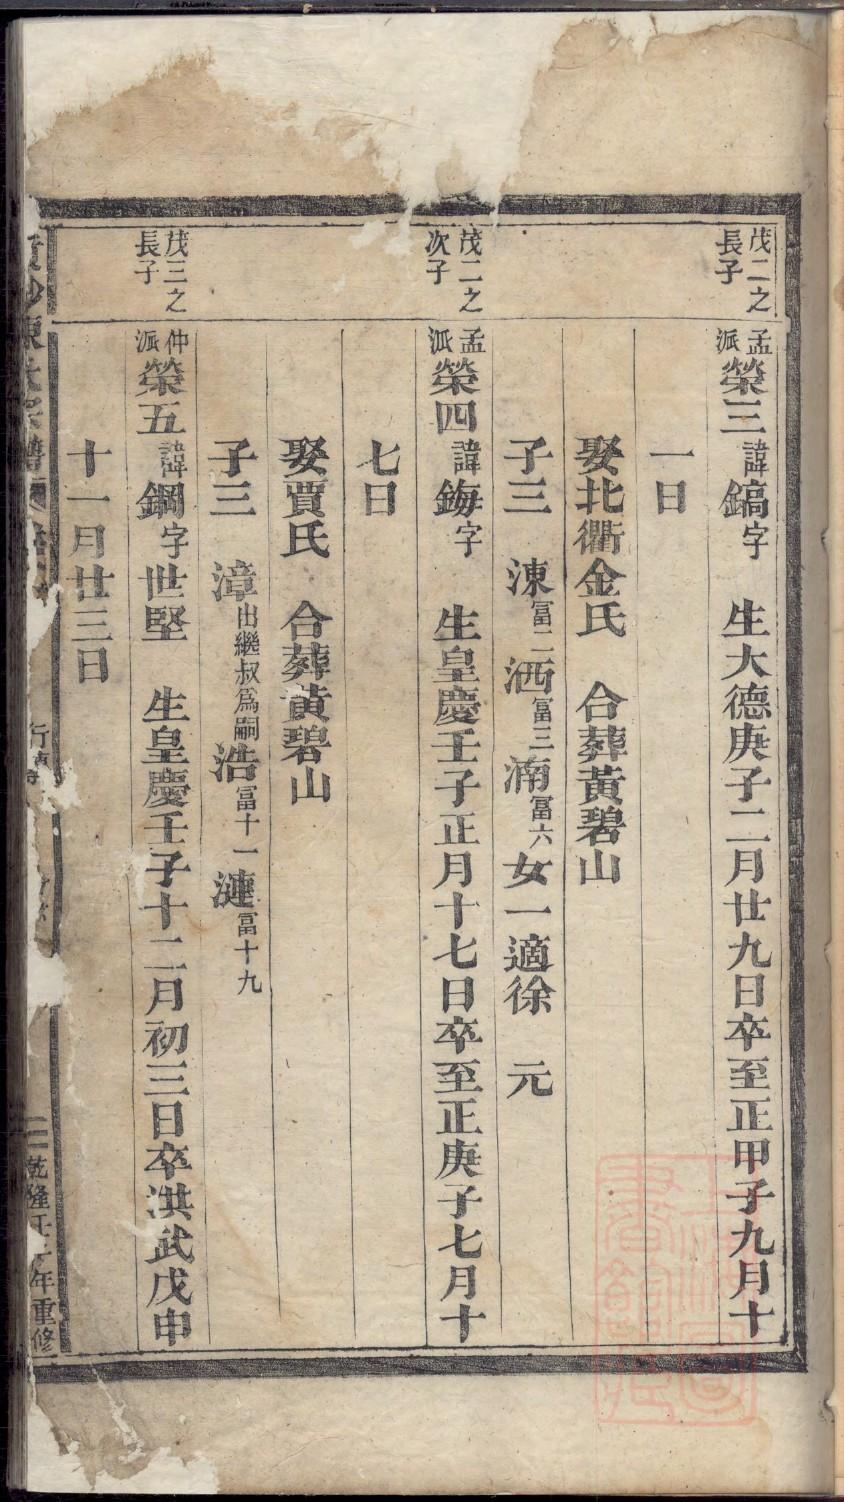 茂二之長子
孟派榮三諱鎬字　生大德庚子二月廿九日卒至正甲子九月十
一日
娶北衢金氏　合葬黃碧山
子三　涷冨二洒冨三湳冨六女一適徐　元
茂二之次子
孟派榮四諱鋂字　生皇慶壬子正月十七日卒至正庚子七月十
七日
娶賈氏　合葬黃碧山
子三　漳出繼叔爲嗣浩冨十一漣冨十九
茂三之長子
仲派榮五諱鋼字世堅　生皇慶壬子十二月初三日卒洪武戊申
十一月廿三日
陳氏宗譜
行
二
乾隆年重修